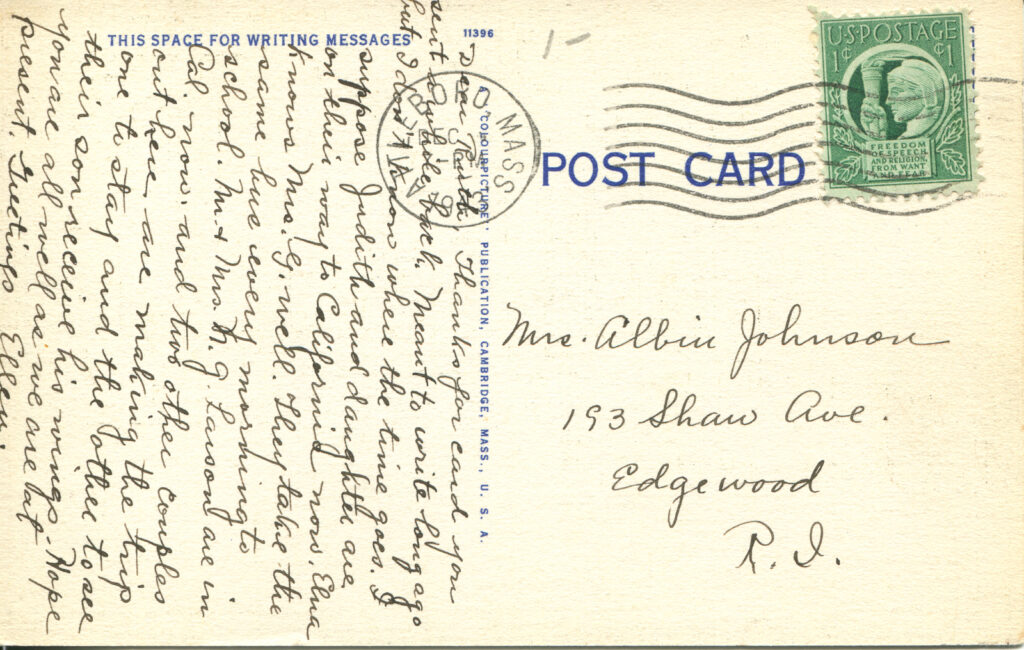 THIS SPACE FOR WRITING MESSAGES
11396
1-
Dear Ruth, Thanks for card you
sent awhile back. Meant to write long ago
but I don't know where the time goes. I
suppose Judith and daughter are
on their way to California now. Elna
knows Mrs. G. well. They take the
same bus every morning to
school. Mr & Mrs. G. Larson are in
Cal. now and two other couples
out here are making the trip
one to stay and the other to see
their son receive his wings. Hope
you are all well as we are at
present. Greetings Ellen.
A "COLOURPICTURE" PUBLICATION, CAMBRIDGE, MASS., U. S. A.
MASS
POST CARD
U·S·POSTAGE
1¢ ¢1
FREEDOM
OF SPEECH
AND RELIGION,
FROM WANT
AND FEAR
Mrs. Albin Johnson
193 Shaw Ave.
Edgewood
R.I.